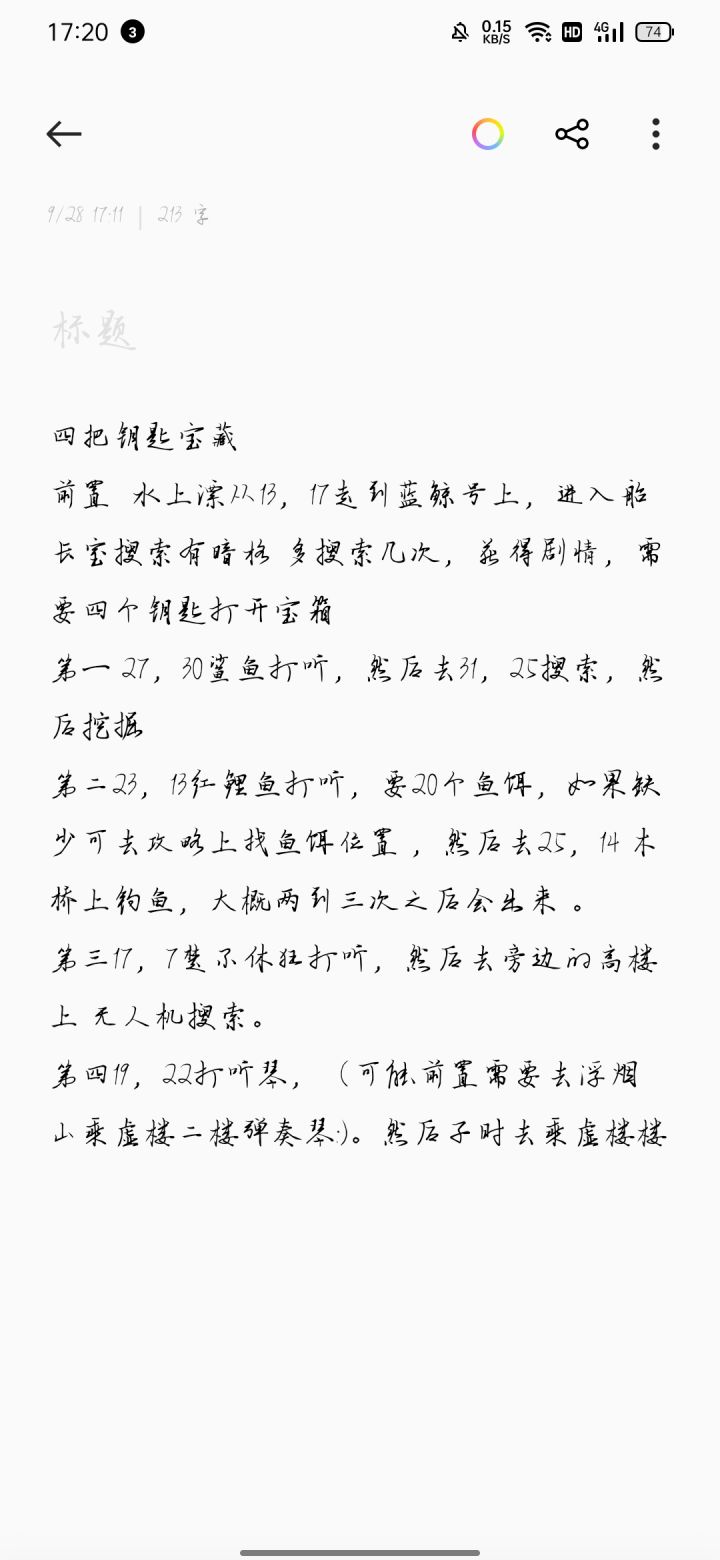 17:20 3 0.15 KB/S HD 4G 74
9/28 17:11 | 213 字
标题
四把钥匙宝藏
前置 水上漂从13，17走到蓝鲸号上，进入船
长室搜索有暗格 多搜索几次，获得剧情，需
要四个钥匙打开宝箱
第一 27，30鲨鱼打听，然后去31，25搜索，然
后挖掘
第二23，13红鲤鱼打听，要20个鱼饵，如果缺
少可去攻略上找鱼饵位置 ，然后去25，14 木
桥上钓鱼，大概两到三次之后会出来 。
第三17，7楚不休狂打听，然后去旁边的高楼
上 无人机搜索。
第四19，22打听琴，（可能前置需要去浮烟
山乘虚楼二楼弹奏琴:)。然后子时去乘虚楼楼